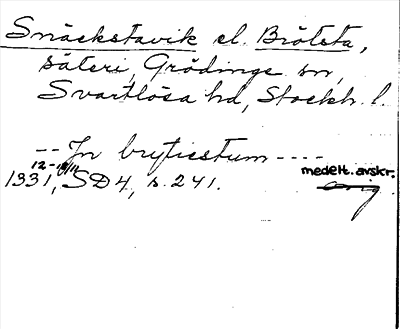 Snäckstavik el. Brötsta,
säteri, Grödinge sn,
Svartlösa hd, Stockh. l.
-- In brytiestum ----
medelt. avskr.
12-18/11
1331, SD 4, s. 241.
orig